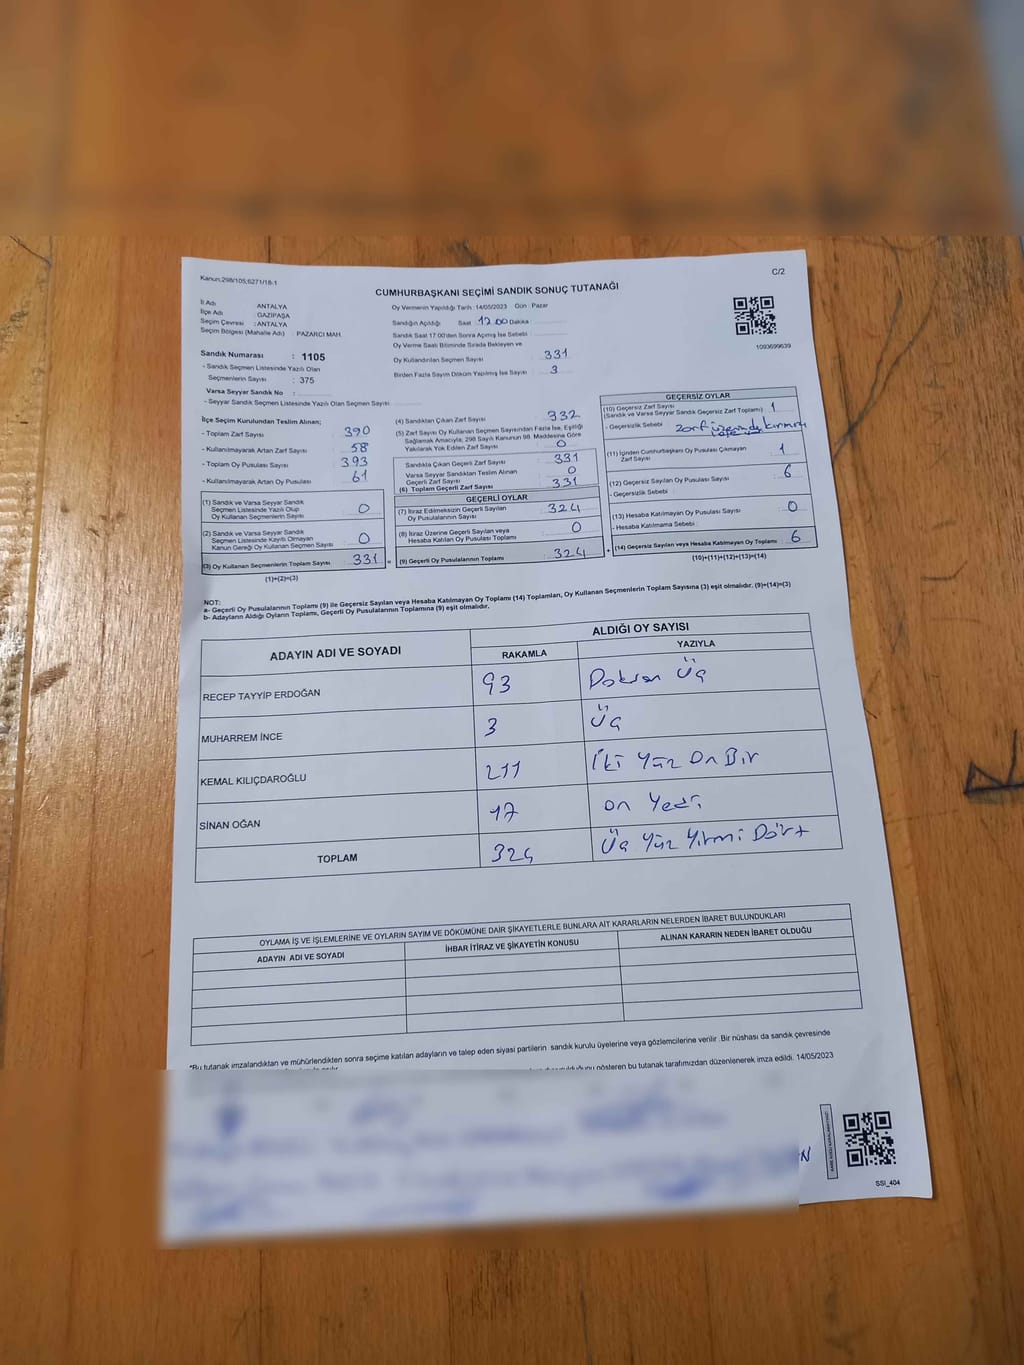 Kanun:298/105;6271/18-1
C/2
CUMHURBAŞKANI SEÇİMİ SANDIK SONUÇ TUTANAĞI
İl Adı ANTALYA
İlçe Adı GAZİPAŞA
Seçim Çevresi : ANTALYA
Seçim Bölgesi (Mahalle Adı) PAZARCI MAH.
Sandık Numarası : 1105
- Sandık Seçmen Listesinde Yazılı Olan
Seçmenlerin Sayısı : 375
Varsa Seyyar Sandık No :
- Seyyar Sandık Seçmen Listesinde Yazılı Olan Seçmen Sayısı:
Oy Vermenin Yapıldığı Tarih : 14/05/2023 Gün : Pazar
Sandığın Açıldığı Saat 17.00 Dakika :
Sandık Saat 17:00'den Sonra Açılmış İse Sebebi :
Oy Verme Saati Bitiminde Sırada Bekleyen ve
Oy Kullandırılan Seçmen Sayısı 331
Birden Fazla Sayım Döküm Yapılmış İse Sayısı : 3
1093699639
İlçe Seçim Kurulundan Teslim Alınan;
- Toplam Zarf Sayısı : 390
- Kullanılmayarak Artan Zarf Sayısı : 58
- Toplam Oy Pusulası Sayısı : 393
- Kullanılmayarak Artan Oy Pusulası Sayısı : 61
(1) Sandık ve Varsa Seyyar Sandık
Seçmen Listesinde Yazılı Olup
Oy Kullanan Seçmenlerin Sayısı : 0
(2) Sandık ve Varsa Seyyar Sandık
Seçmen Listesinde Kayıtlı Olmayan
Kanun Gereği Oy Kullanan Seçmen Sayısı : 0
(3) Oy Kullanan Seçmenlerin Toplam Sayısı : 331 =
(1)+(2)=(3)
(4) Sandıktan Çıkan Zarf Sayısı : 332
(5) Zarf Sayısı Oy Kullanan Seçmen Sayısından Fazla İse, Eşitliği
Sağlamak Amacıyla; 298 Sayılı Kanunun 98. Maddesine Göre
Yakılarak Yok Edilen Zarf Sayısı : 0
Sandıkta Çıkan Geçerli Zarf Sayısı : 331
Varsa Seyyar Sandıktan Teslim Alınan
Geçerli Zarf Sayısı : 0
(6) Toplam Geçerli Zarf Sayısı : 331
GEÇERLİ OYLAR
(7) İtiraz Edilmeksizin Geçerli Sayılan
Oy Pusulalarının Sayısı : 324
(8) İtiraz Üzerine Geçerli Sayılan veya
Hesaba Katılan Oy Pusulası Toplamı : 0
(9) Geçerli Oy Pusulalarının Toplamı : 324 +
GEÇERSİZ OYLAR
(10) Geçersiz Zarf Sayısı
(Sandık ve Varsa Seyyar Sandık Geçersiz Zarf Toplamı) : 1
- Geçersizlik Sebebi : zarf üzerinde kırmızı
(11) İçinden Cumhurbaşkanı Oy Pusulası Çıkmayan
Zarf Sayısı : 1
(12) Geçersiz Sayılan Oy Pusulası Sayısı : 6
- Geçersizlik Sebebi :
(13) Hesaba Katılmayan Oy Pusulası Sayısı : 0
- Hesaba Katılmama Sebebi :
(14) Geçersiz Sayılan veya Hesaba Katılmayan Oy Toplamı : 6
(10)+(11)+(12)+(13)=(14)
NOT:
a- Geçerli Oy Pusulalarının Toplamı (9) ile Geçersiz Sayılan veya Hesaba Katılmayan Oy Toplamı (14) Toplamları, Oy Kullanan Seçmenlerin Toplam Sayısına (3) eşit olmalıdır. (9)+(14)=(3)
b- Adayların Aldığı Oyların Toplamı, Geçerli Oy Pusulalarının Toplamına (9) eşit olmalıdır.
ADAYIN ADI VE SOYADI ALDIĞI OY SAYISI
RAKAMLA YAZIYLA
RECEP TAYYİP ERDOĞAN 93 Doksan Üç
MUHARREM İNCE 3 Üç
KEMAL KILIÇDAROĞLU 211 İki Yüz On Bir
SİNAN OĞAN 17 on Yedi
TOPLAM 324 Üç Yüz Yirmi Dört
OYLAMA İŞ VE İŞLEMLERİNE VE OYLARIN SAYIM VE DÖKÜMÜNE DAİR ŞİKAYETLERLE BUNLARA AİT KARARLARIN NELERDEN İBARET BULUNDUKLARI
ADAYIN ADI VE SOYADI İHBAR İTİRAZ VE ŞİKAYETİN KONUSU ALINAN KARARIN NEDEN İBARET OLDUĞU
*Bu tutanak imzalandıktan ve mühürlendikten sonra seçime katılan adayların ve talep eden siyasi partilerin sandık kurulu üyelerine veya gözlemcilerine verilir. Bir nüshası da sandık çevresinde
gösteren bu tutanak tarafımızdan düzenlenerek imza edildi. 14/05/2023
SSI_404